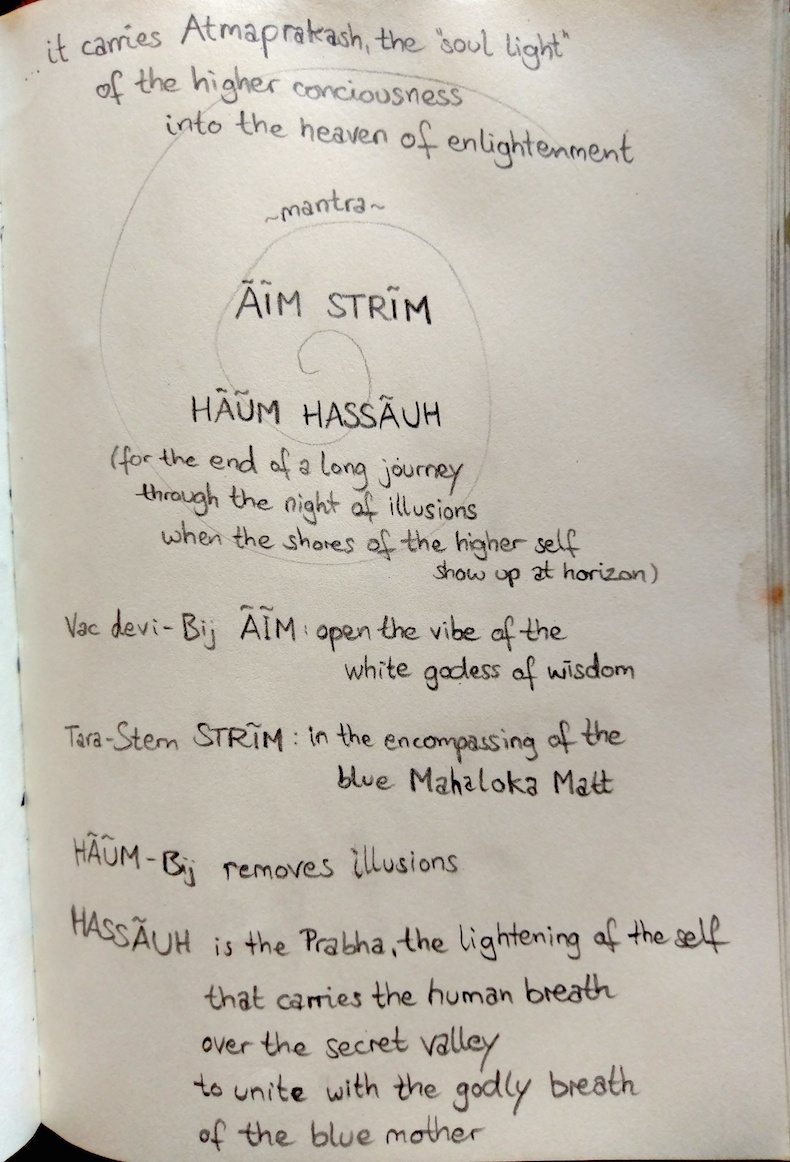 ...it carries Atmaprakash, the "soul light"
of the higher conciousness
into the heaven of enlightenment
~mantra~
ÃĨM STRĨM
HÃŨM HASSÃUH
(for the end of a long journey
through the night of illusions
when the shores of the higher self
show up at horizon)
Vac devi-Bij ÃĨM: open the vibe of the
white godess of wisdom
Tara-Stem STRĨM: in the encompassing of the
blue Mahaloka Matt
HÃŨM-Bij removes illusions
HASSÃUH is the Prabha, the lightening of the self
that carries the human breath
over the secret valley
to unite with the godly breath
of the blue mother